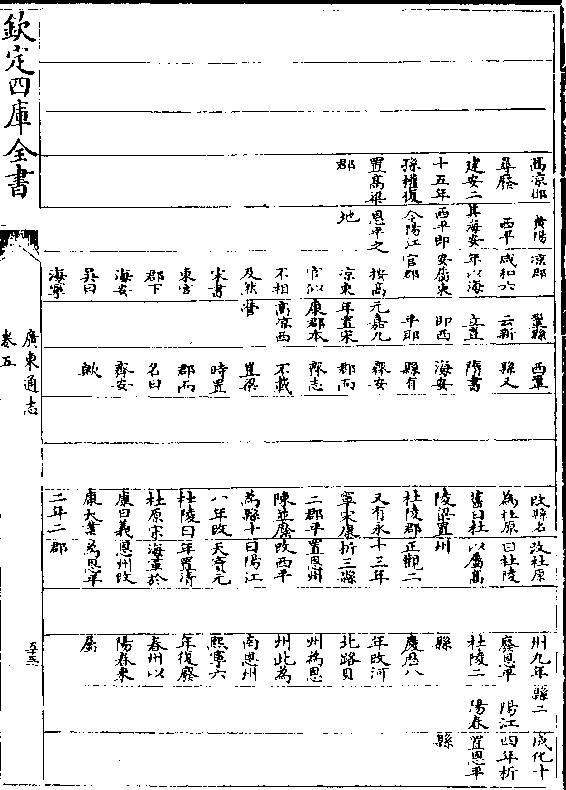 欽定四庫全書
廣東通志
卷五
高凉郡
尋廢
建安二
十五年
孫權復
置高梁
郡
黄陽
西平
其海安
西平即
今陽江
恩平之
地
凉郡
咸和六
年以海
安屬東
官郡
按高
凉東
官似
不相
及然
宋書
東官
郡下
海安
吳曰
海寧
鞏縣
云新
立置
即西
平郡
元嘉九
年置宋
康郡本
高凉西
營
西鞏
縣又
隋書
海安
縣有
齊安
郡而
齊志
不載
豈梁
時置
郡而
名曰
齊安
歟
改縣名
為杜原
舊曰杜
陵梁置
杜陵郡
又有永
寧宋康
二郡平
陳並廢
為縣十
八年改
杜陵曰
杜原宋
康曰義
康大業
二年二
改杜原
曰杜陵
以屬高
州
正觀二
十三年
析三縣
置恩州
改西平
曰陽江
天寶元
年置清
海軍於
恩州改
為恩平
郡
州九年
廢恩平
杜陵二
縣
慶厯八
年改河
北路貝
州為恩
州此為
南恩州
熙寧六
年復廢
春州以
陽春來
屬
縣二
陽江
陽春
成化十
四年析
置恩平
縣